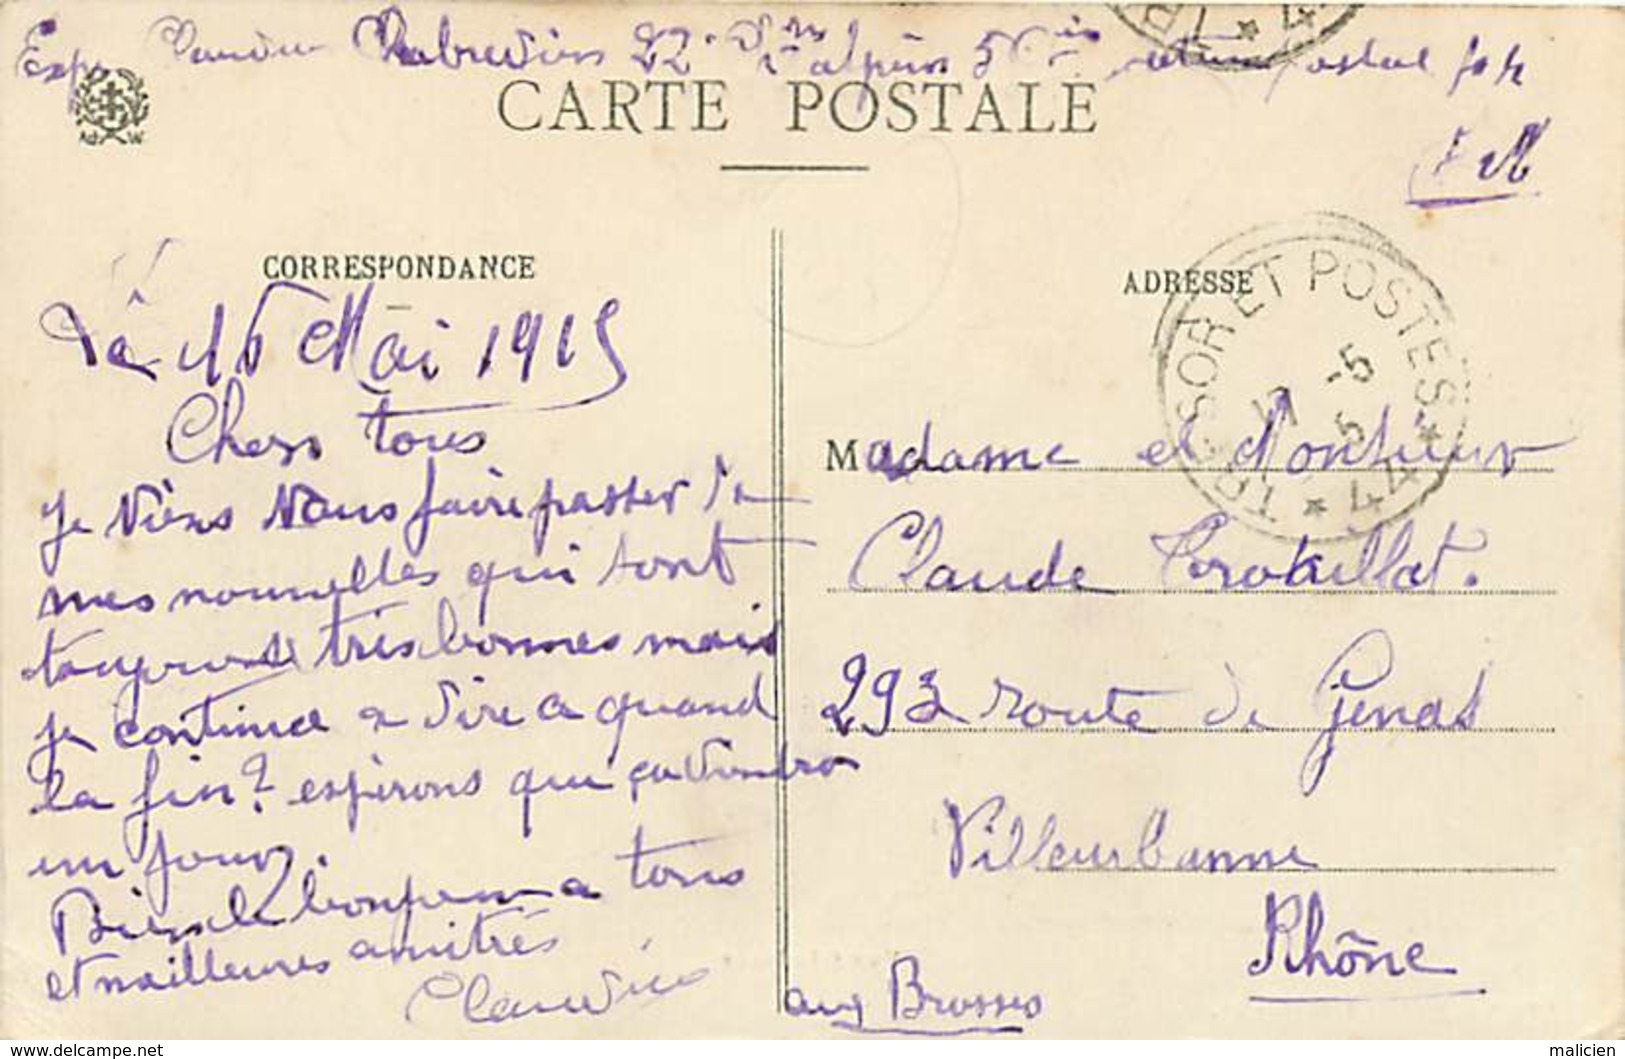 Exp Claudius Chabredier 22e Bon alpins 5e Cie secteur postal 194
F M
CARTE POSTALE
Ad W
CORRESPONDANCE
ADRESSE
TRESOR ET POSTES
17 -5
5
* 44 *
Le 16 Mai 1915
Chers tous
je viens vous faire passer de
mes nouvelles qui sont
toujours très bonnes mais
je continue a dire a quand
la fin? espérons que ça viendra
un jour.
Bien le bonjour a tous
et meilleures amitiés
Claudius
Madame et Monsieur
Claude
293 route de Genas
Villeurbanne
Rhône
aux Brosses
https://www.delcampe.net
malicien